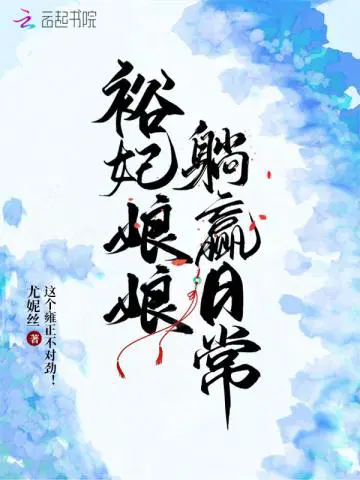 云起书院
裕妃娘娘
躺赢日常
这个雍正不对劲！
尤妮丝 著